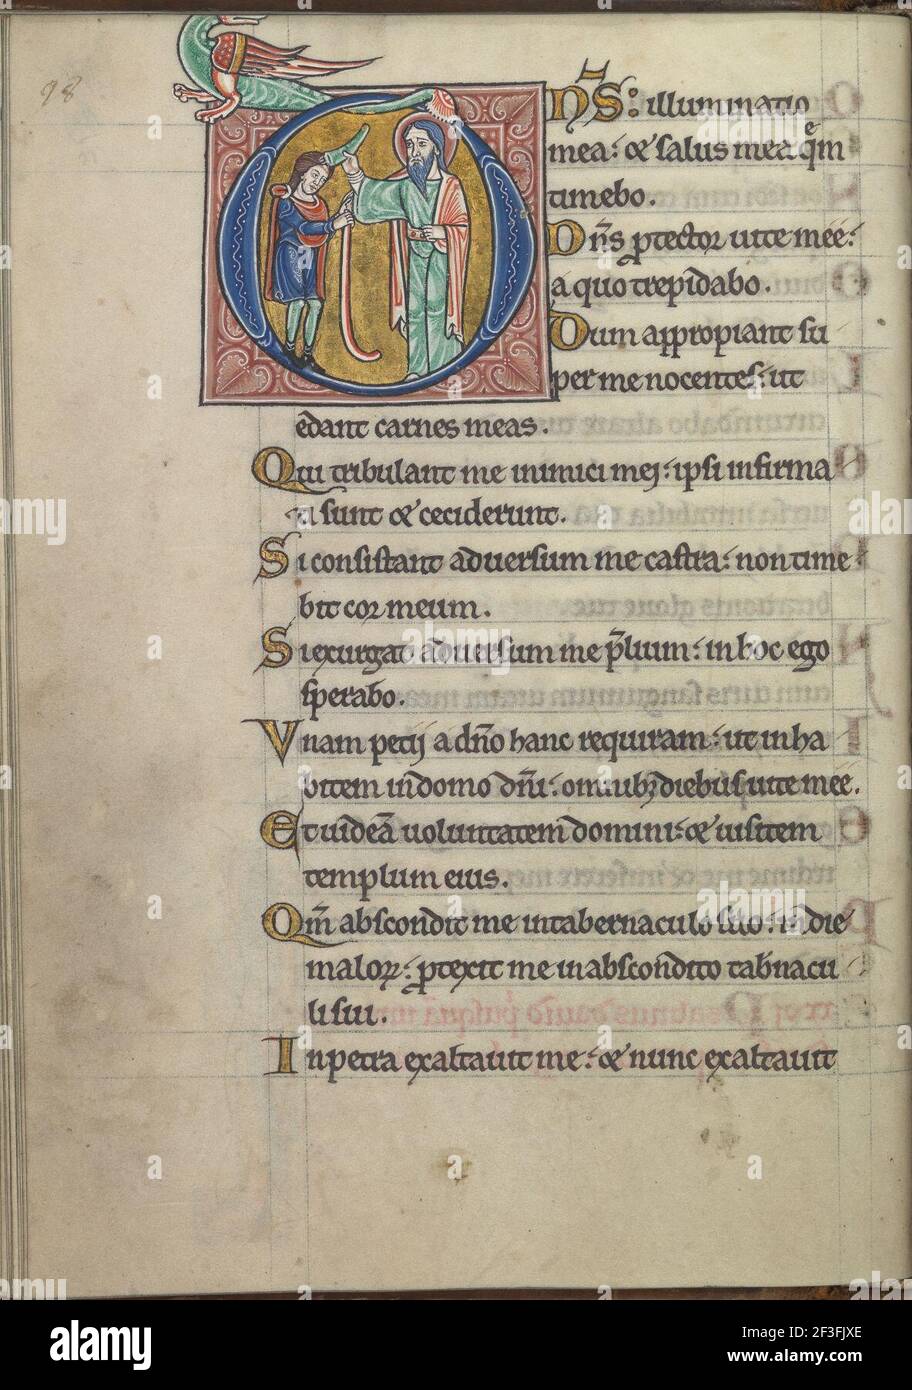 98
DN̄S: illuminatio
mea: & salus mea q̄m
timebo.
Dn̄s ꝓtector uite meę:
a quo trepidabo.
Dum appropiant su
per me nocentes: ut
edant carnes meas.
Qui tribulant me inimici mei: ipsi infirma
ti sunt & ceciderunt.
Si consistant aduersum me castra: non time
bit cor meum.
Si exurgat aduersum me p̄lium: in hoc ego
sperabo.
Vnam petij a dn̄o hanc requiram: ut inha
bitem in domo dn̄i: omnibꝫ diebus uite meę.
Et uideā uoluntatem domini: & uisitem
templum eius.
Qm̄ abscondit me in tabernaculo suo: in die
maloꝝ: ꝓtexit me in abscondito tab̄nacu
li sui.
In petra exaltauit me: & nunc exaltauit
alamy
Image ID: 2F3FJXE
www.alamy.com